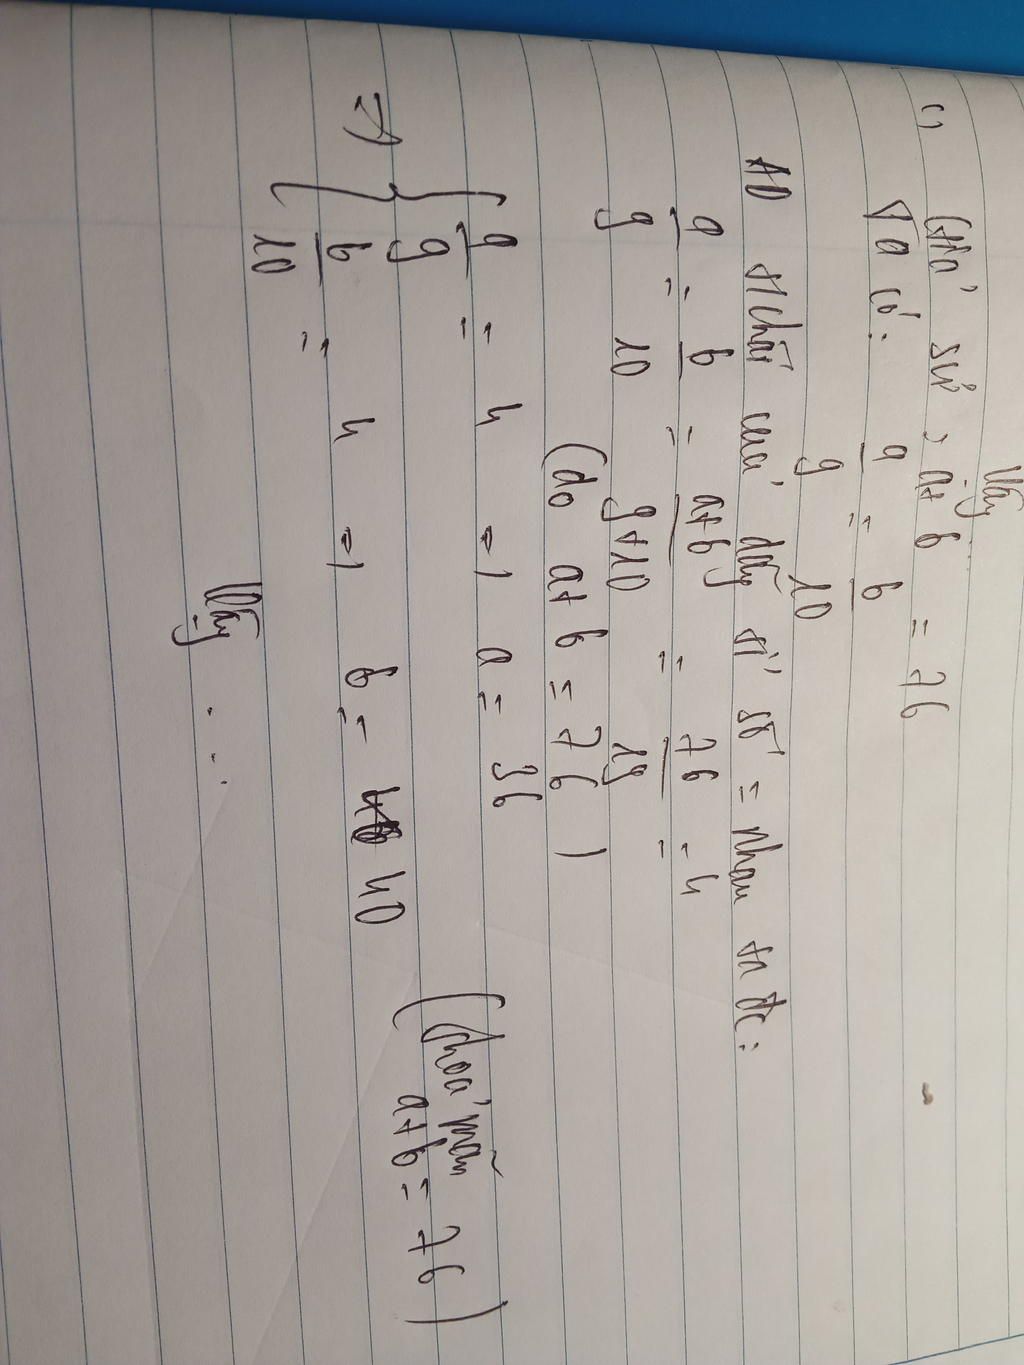 Vậy
c) Giả sử a+b = 76
Ta có: a/9 = b/10
AD t/chất của dãy tỉ số = nhau ta đc:
a/9 = b/10 = a+b/9+10 = 76/19 = 4
(do a+b = 76)
=> { a/9 = 4 => a = 36
b/10 = 4 => b = 40
(thoả mãn a+b = 76)
Vậy ...